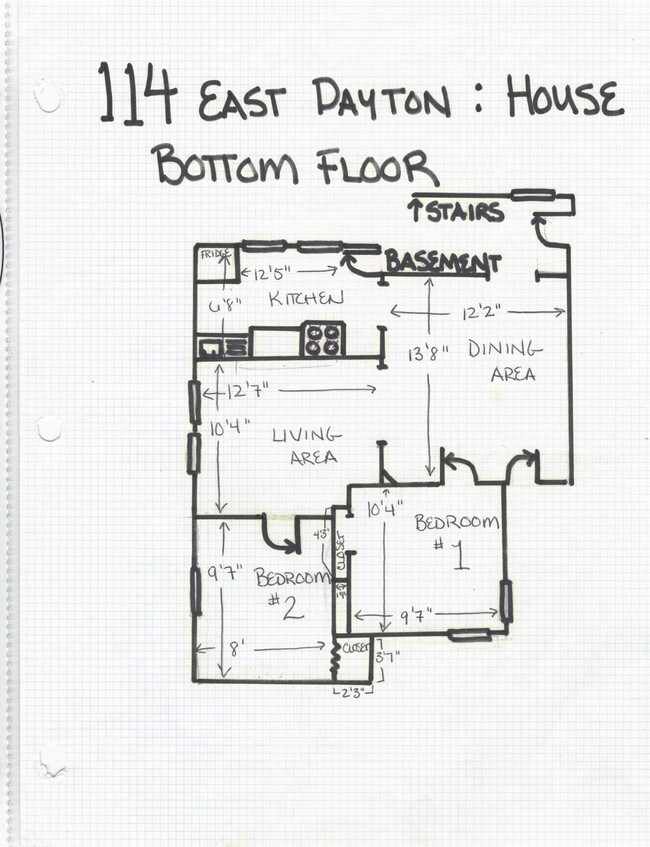 114 EAST DAYTON : HOUSE
BOTTOM FLOOR
↑STAIRS
FRIDGE
BASEMENT
12'5"
6'8"
KITCHEN
12'2"
13'8"
DINING
AREA
12'7"
10'4"
LIVING
AREA
10'4"
BEDROOM
#1
4'3"
CLOSET
9'7"
BEDROOM
#2
9'7"
8'
CLOSET
3'7"
2'3"